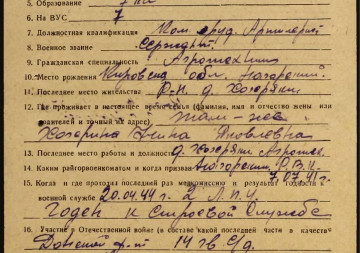 5. Образование 7 кл
6. На ВУС 7
7. Должностная квалификация Ком. оруд. Артиллерий
8. Военное звание Сержант
9. Гражданская специальность Агротехник
10. Место рождения Кировская обл. Нагорский
11. Последнее место жительства д. Кочуряти
12. Где проживает в настоящее время семья (фамилия, имя и отчество жены или
родителей и точный их адрес) Там-же
Нина Яковлевна
13. Последнее место работы и должность
14. Каким райгорвоенкоматом и когда призван Нагорский Р.В.К.
7.07.41 г
15. Когда и где проходил последний раз медкомиссию и результат годности к
военной службе 20.04.44 г 2 Л.П.У.
Годен к строевой службе
16. Участие в Отечественной войне (в составе какой последней части и в качестве
Донской ф-т 14 гв С/д